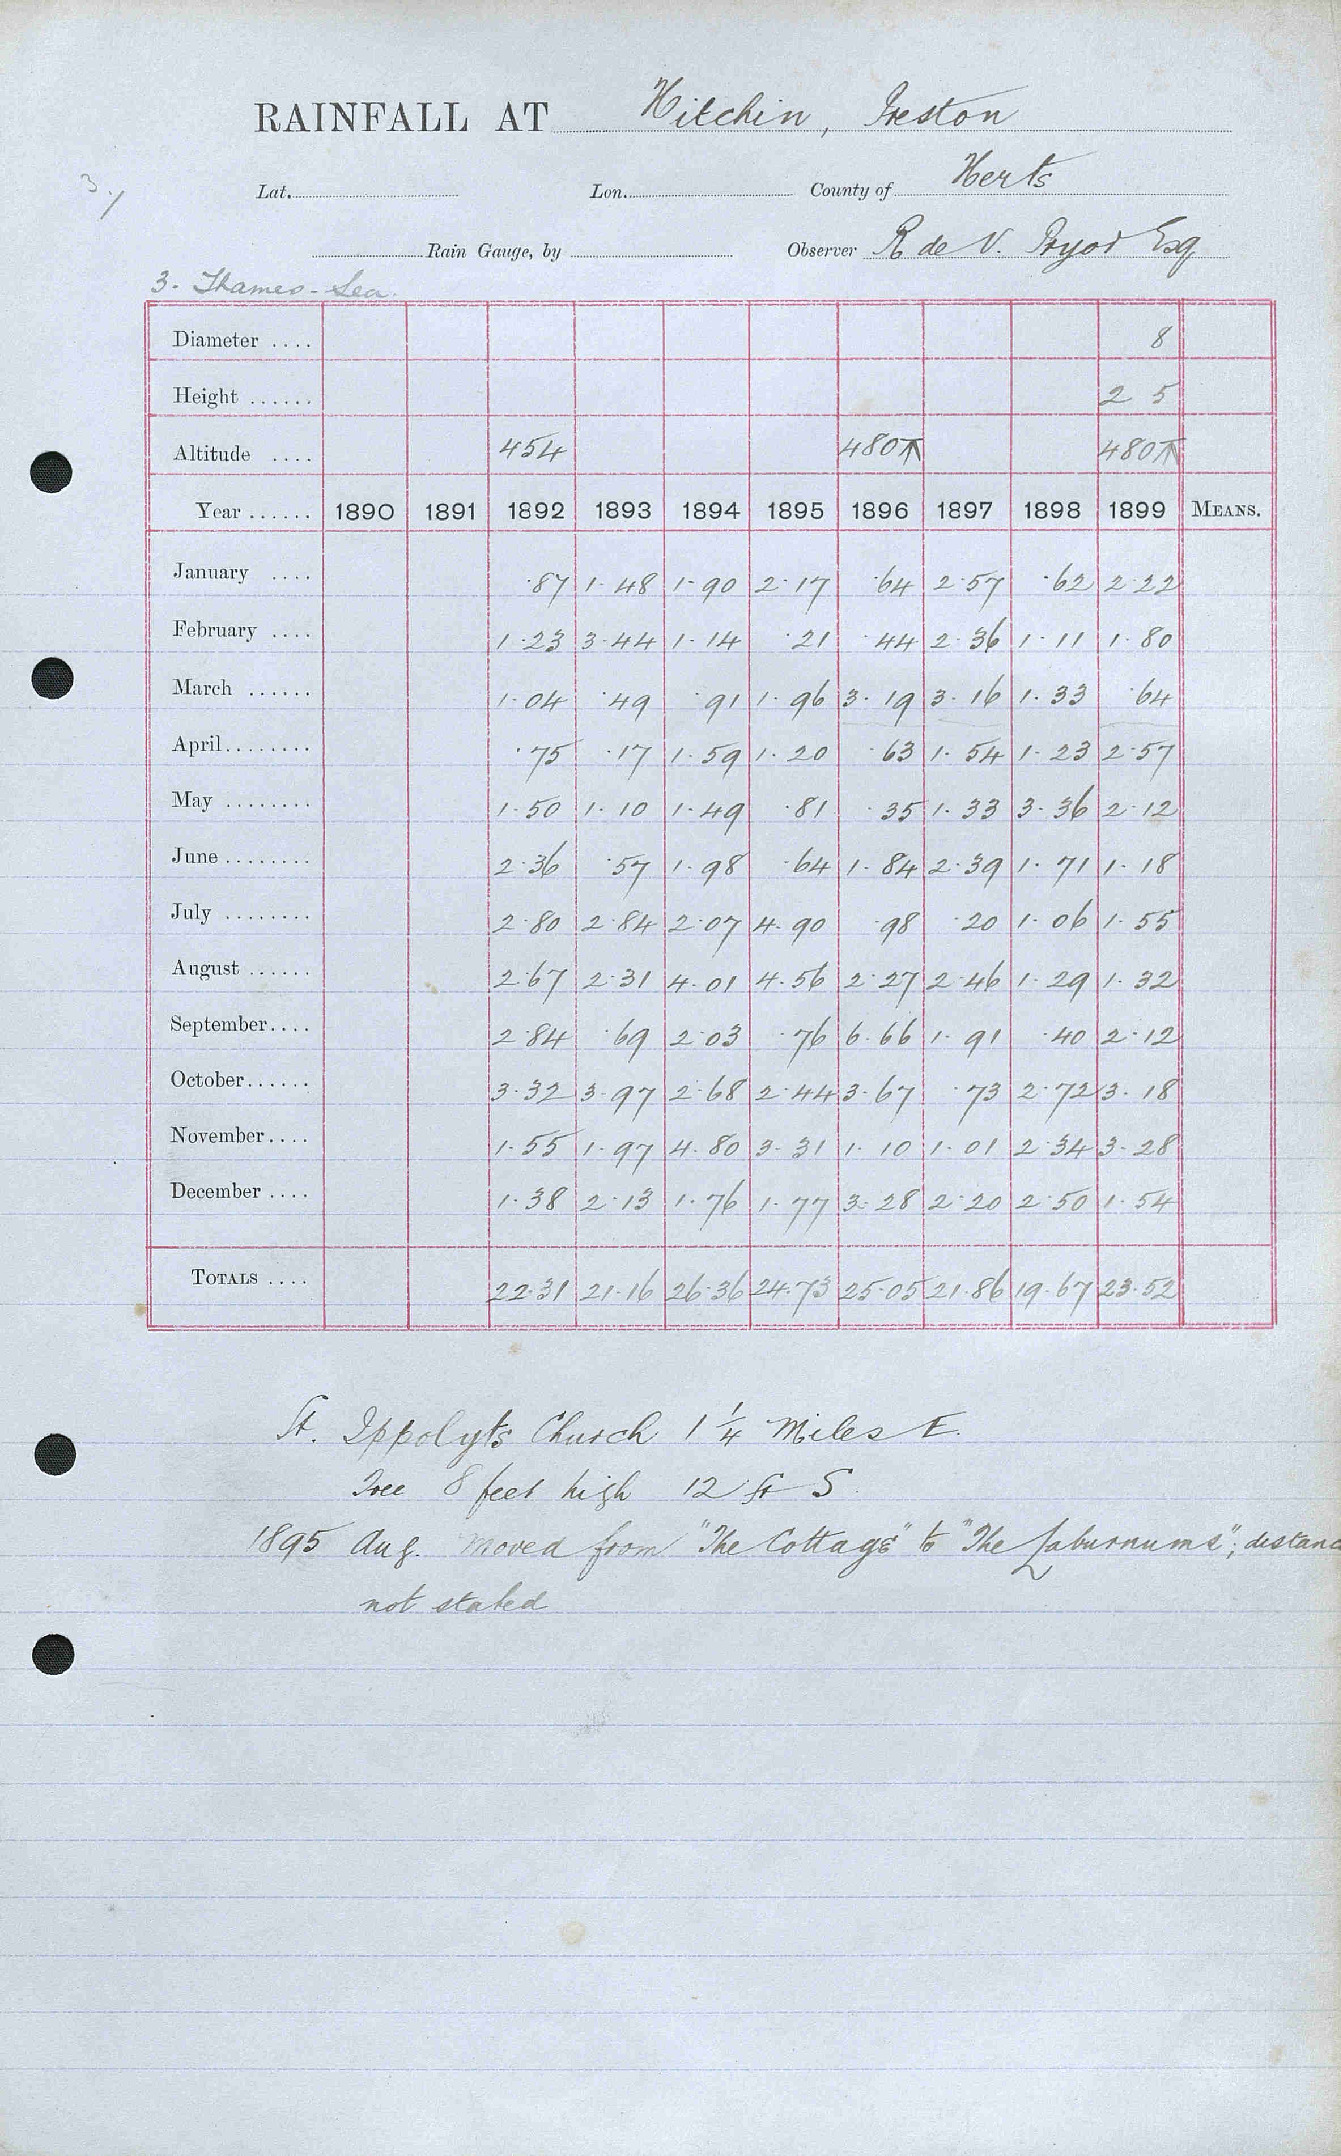 RAINFALL AT Hitchin, Preston
3.
Lat. Lon. County of Herts
Rain Gauge, by Observer R de V. Pryor Esq
3. Thames - Sea.
Diameter .... 8
Height ...... 2 5
Altitude .... 454 480 480
Year ...... 1890 1891 1892 1893 1894 1895 1896 1897 1898 1899 MEANS.
January .... ·87 1·48 1·90 2·17 ·64 2·57 ·62 2·22
February .... 1·23 3·44 1·14 ·21 ·44 2·36 1·11 1·80
March ...... 1·04 ·49 ·91 1·96 3·19 3·16 1·33 ·64
April........ ·75 ·17 1·59 1·20 ·63 1·54 1·23 2·57
May ........ 1·50 1·10 1·49 ·81 ·35 1·33 3·36 2·12
June ........ 2·36 ·57 1·98 ·64 1·84 2·39 1·71 1·18
July ........ 2·80 2·84 2·07 4·90 ·98 ·20 1·06 1·55
August ...... 2·67 2·31 4·01 4·56 2·27 2·46 1·29 1·32
September.... 2·84 ·69 2·03 ·76 6·66 1·91 ·40 2·12
October...... 3·32 3·97 2·68 2·44 3·67 ·73 2·72 3·18
November.... 1·55 1·97 4·80 3·31 1·10 1·01 2·34 3·28
December .... 1·38 2·13 1·76 1·77 3·28 2·20 2·50 1·54
TOTALS .... 22·31 21·16 26·36 24·73 25·05 21·86 19·67 23·52
St. Ippolyts Church 1 1/4 Miles E.
Tree 8 feet high 12 ft S
1895 Aug. Moved from "The Cottage" to "The Laburnums"; distanc
not stated